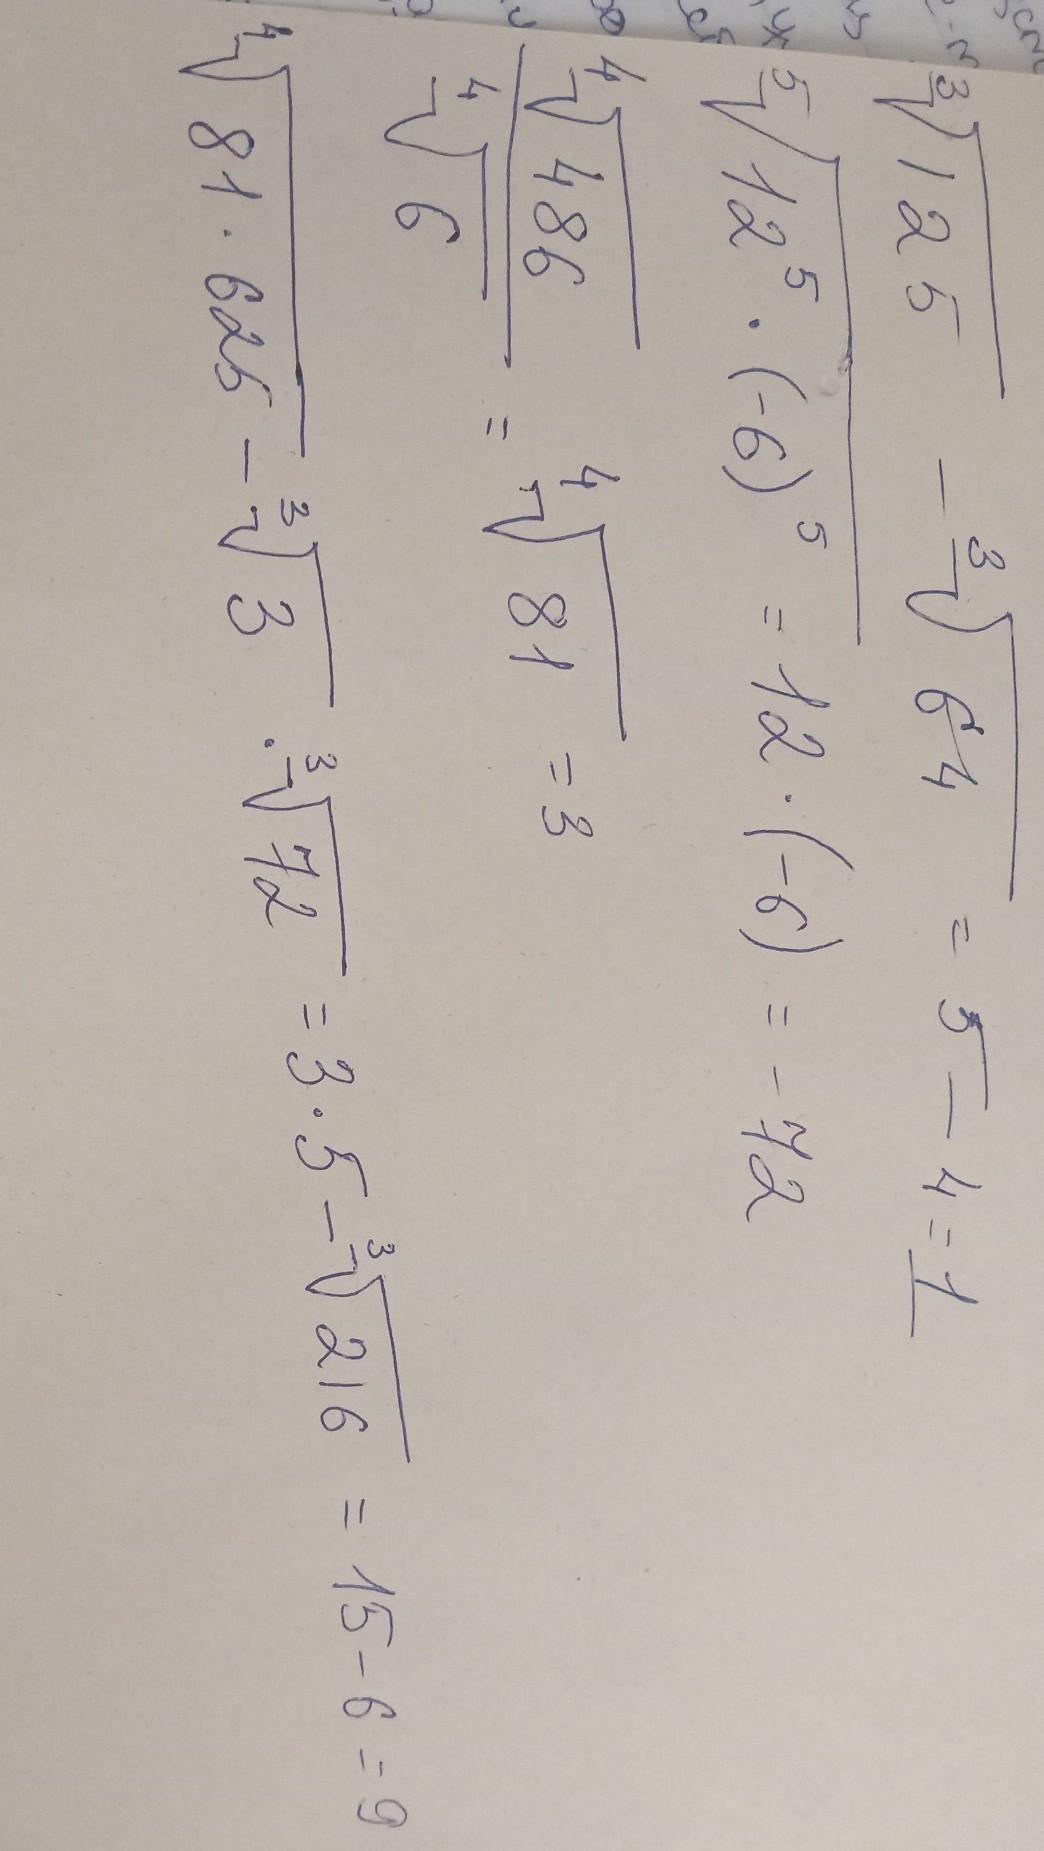 ∛125 − ∛64 = 5 − 4 = 1
⁵√(12⁵ · (-6)⁵) = 12 · (-6) = -72
⁴√486 / ⁴√6 = ⁴√81 = 3
⁴√(81 · 625) − ∛3 · ∛72 = 3 · 5 − ∛216 = 15 − 6 = 9